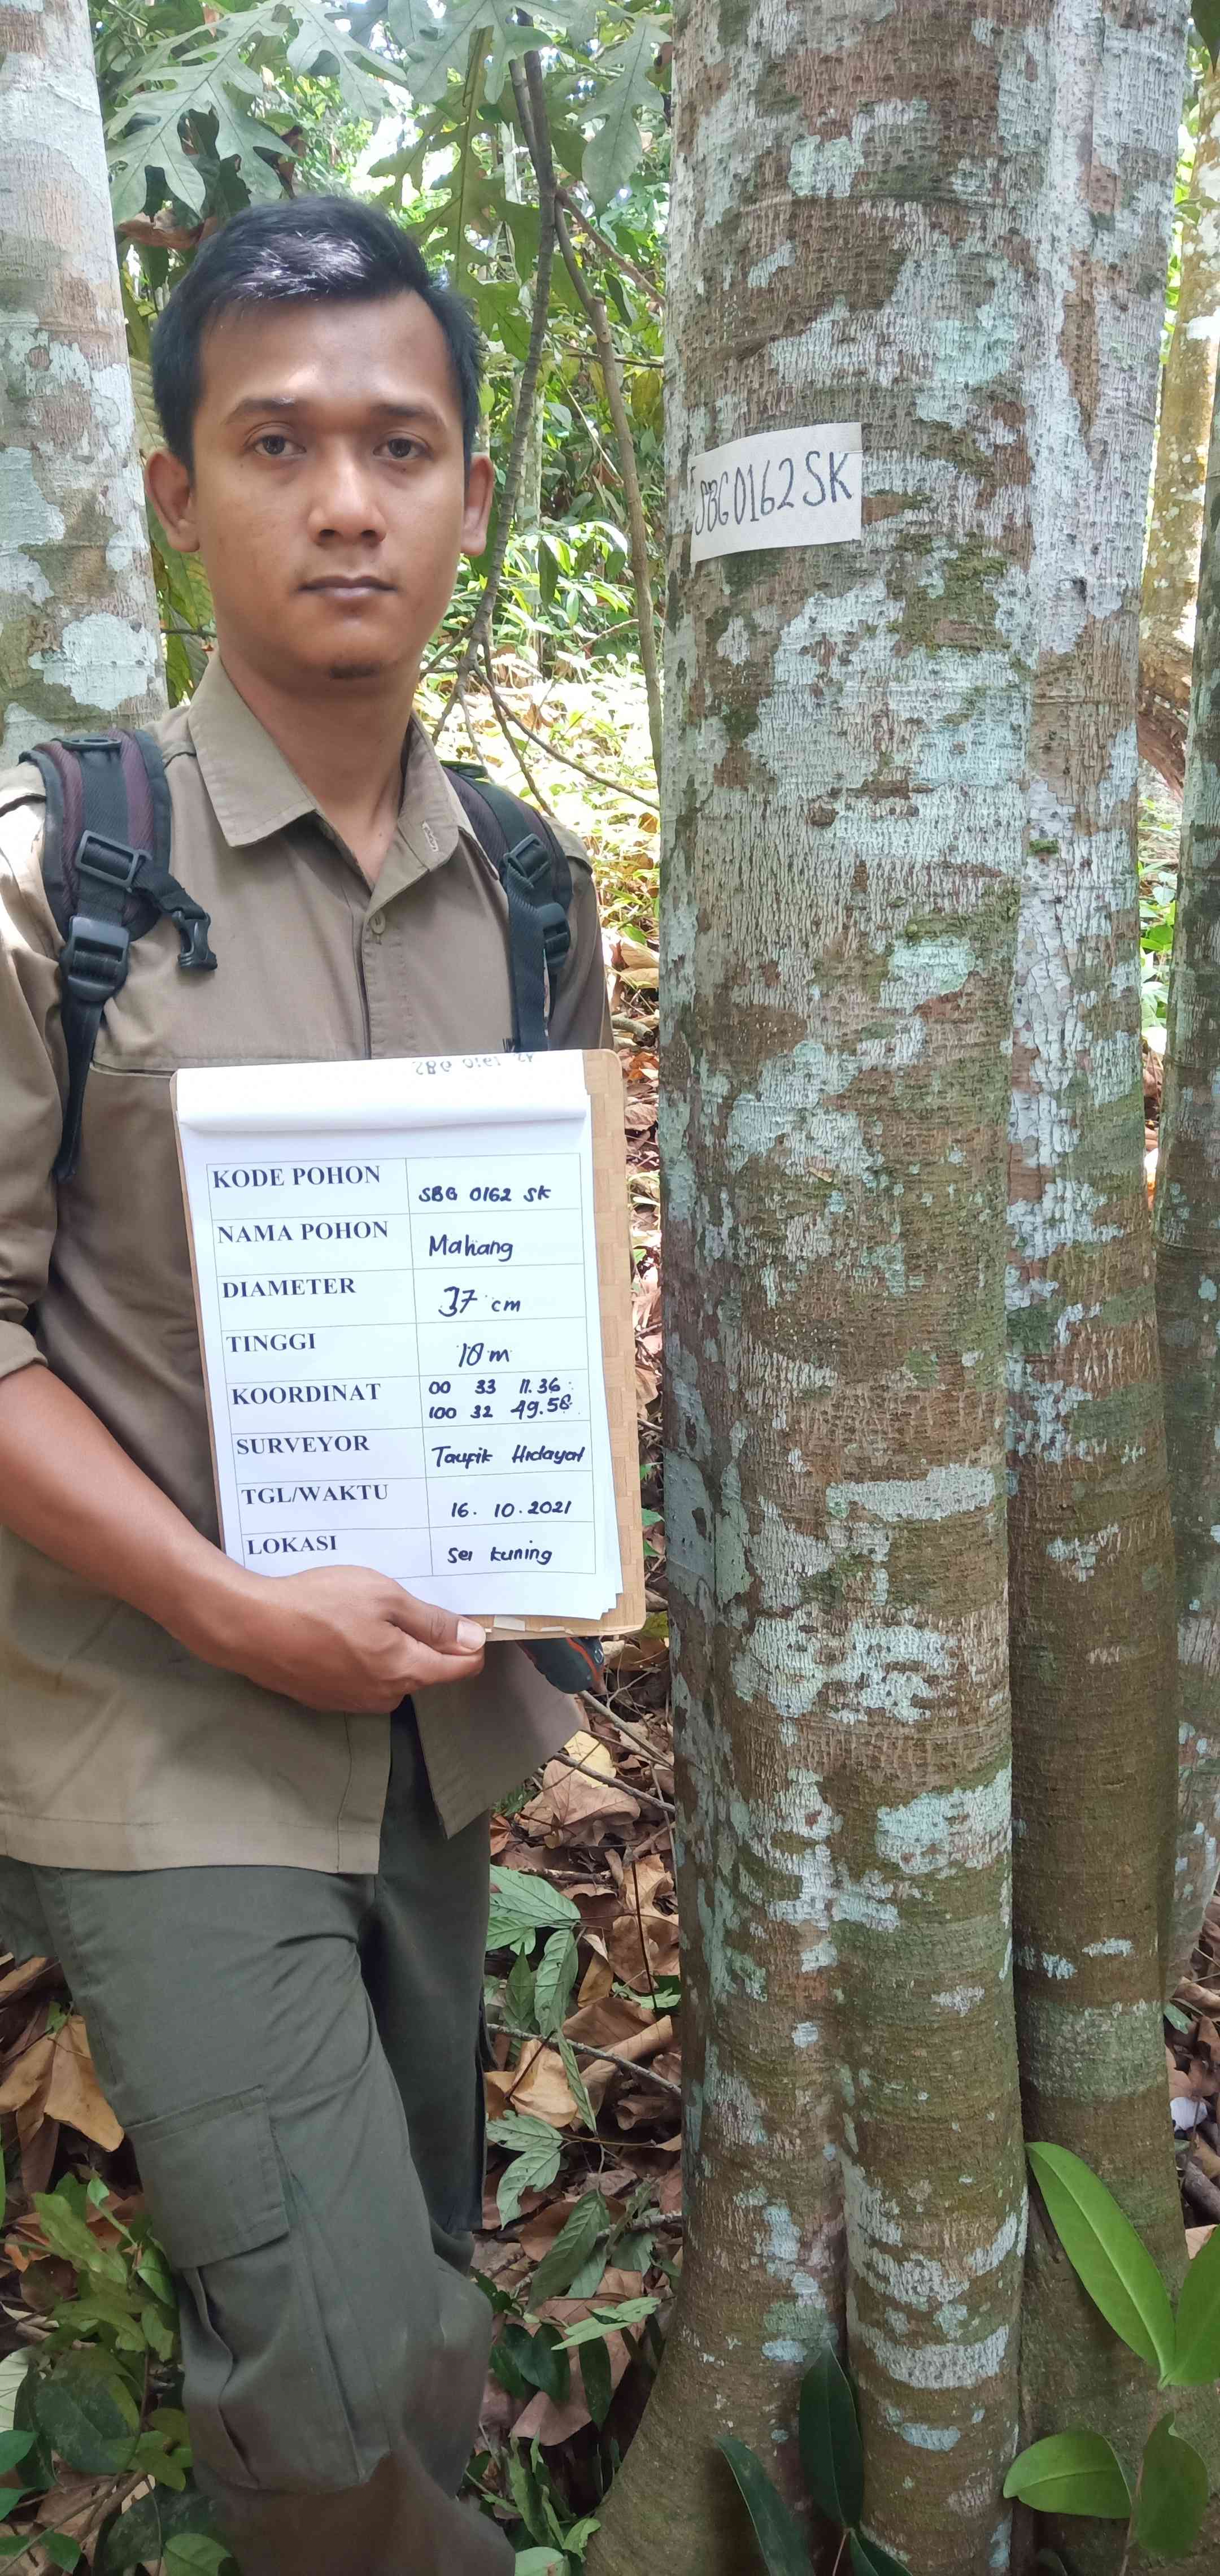 SBG0162SK
KODE POHON SBG 0162 SK
NAMA POHON Mahang
DIAMETER 37 cm
TINGGI 18 m
KOORDINAT 00 33 11.36
100 32 49.56
SURVEYOR Taufik Hidayat
TGL/WAKTU 16. 10. 2021
LOKASI Sei kuning